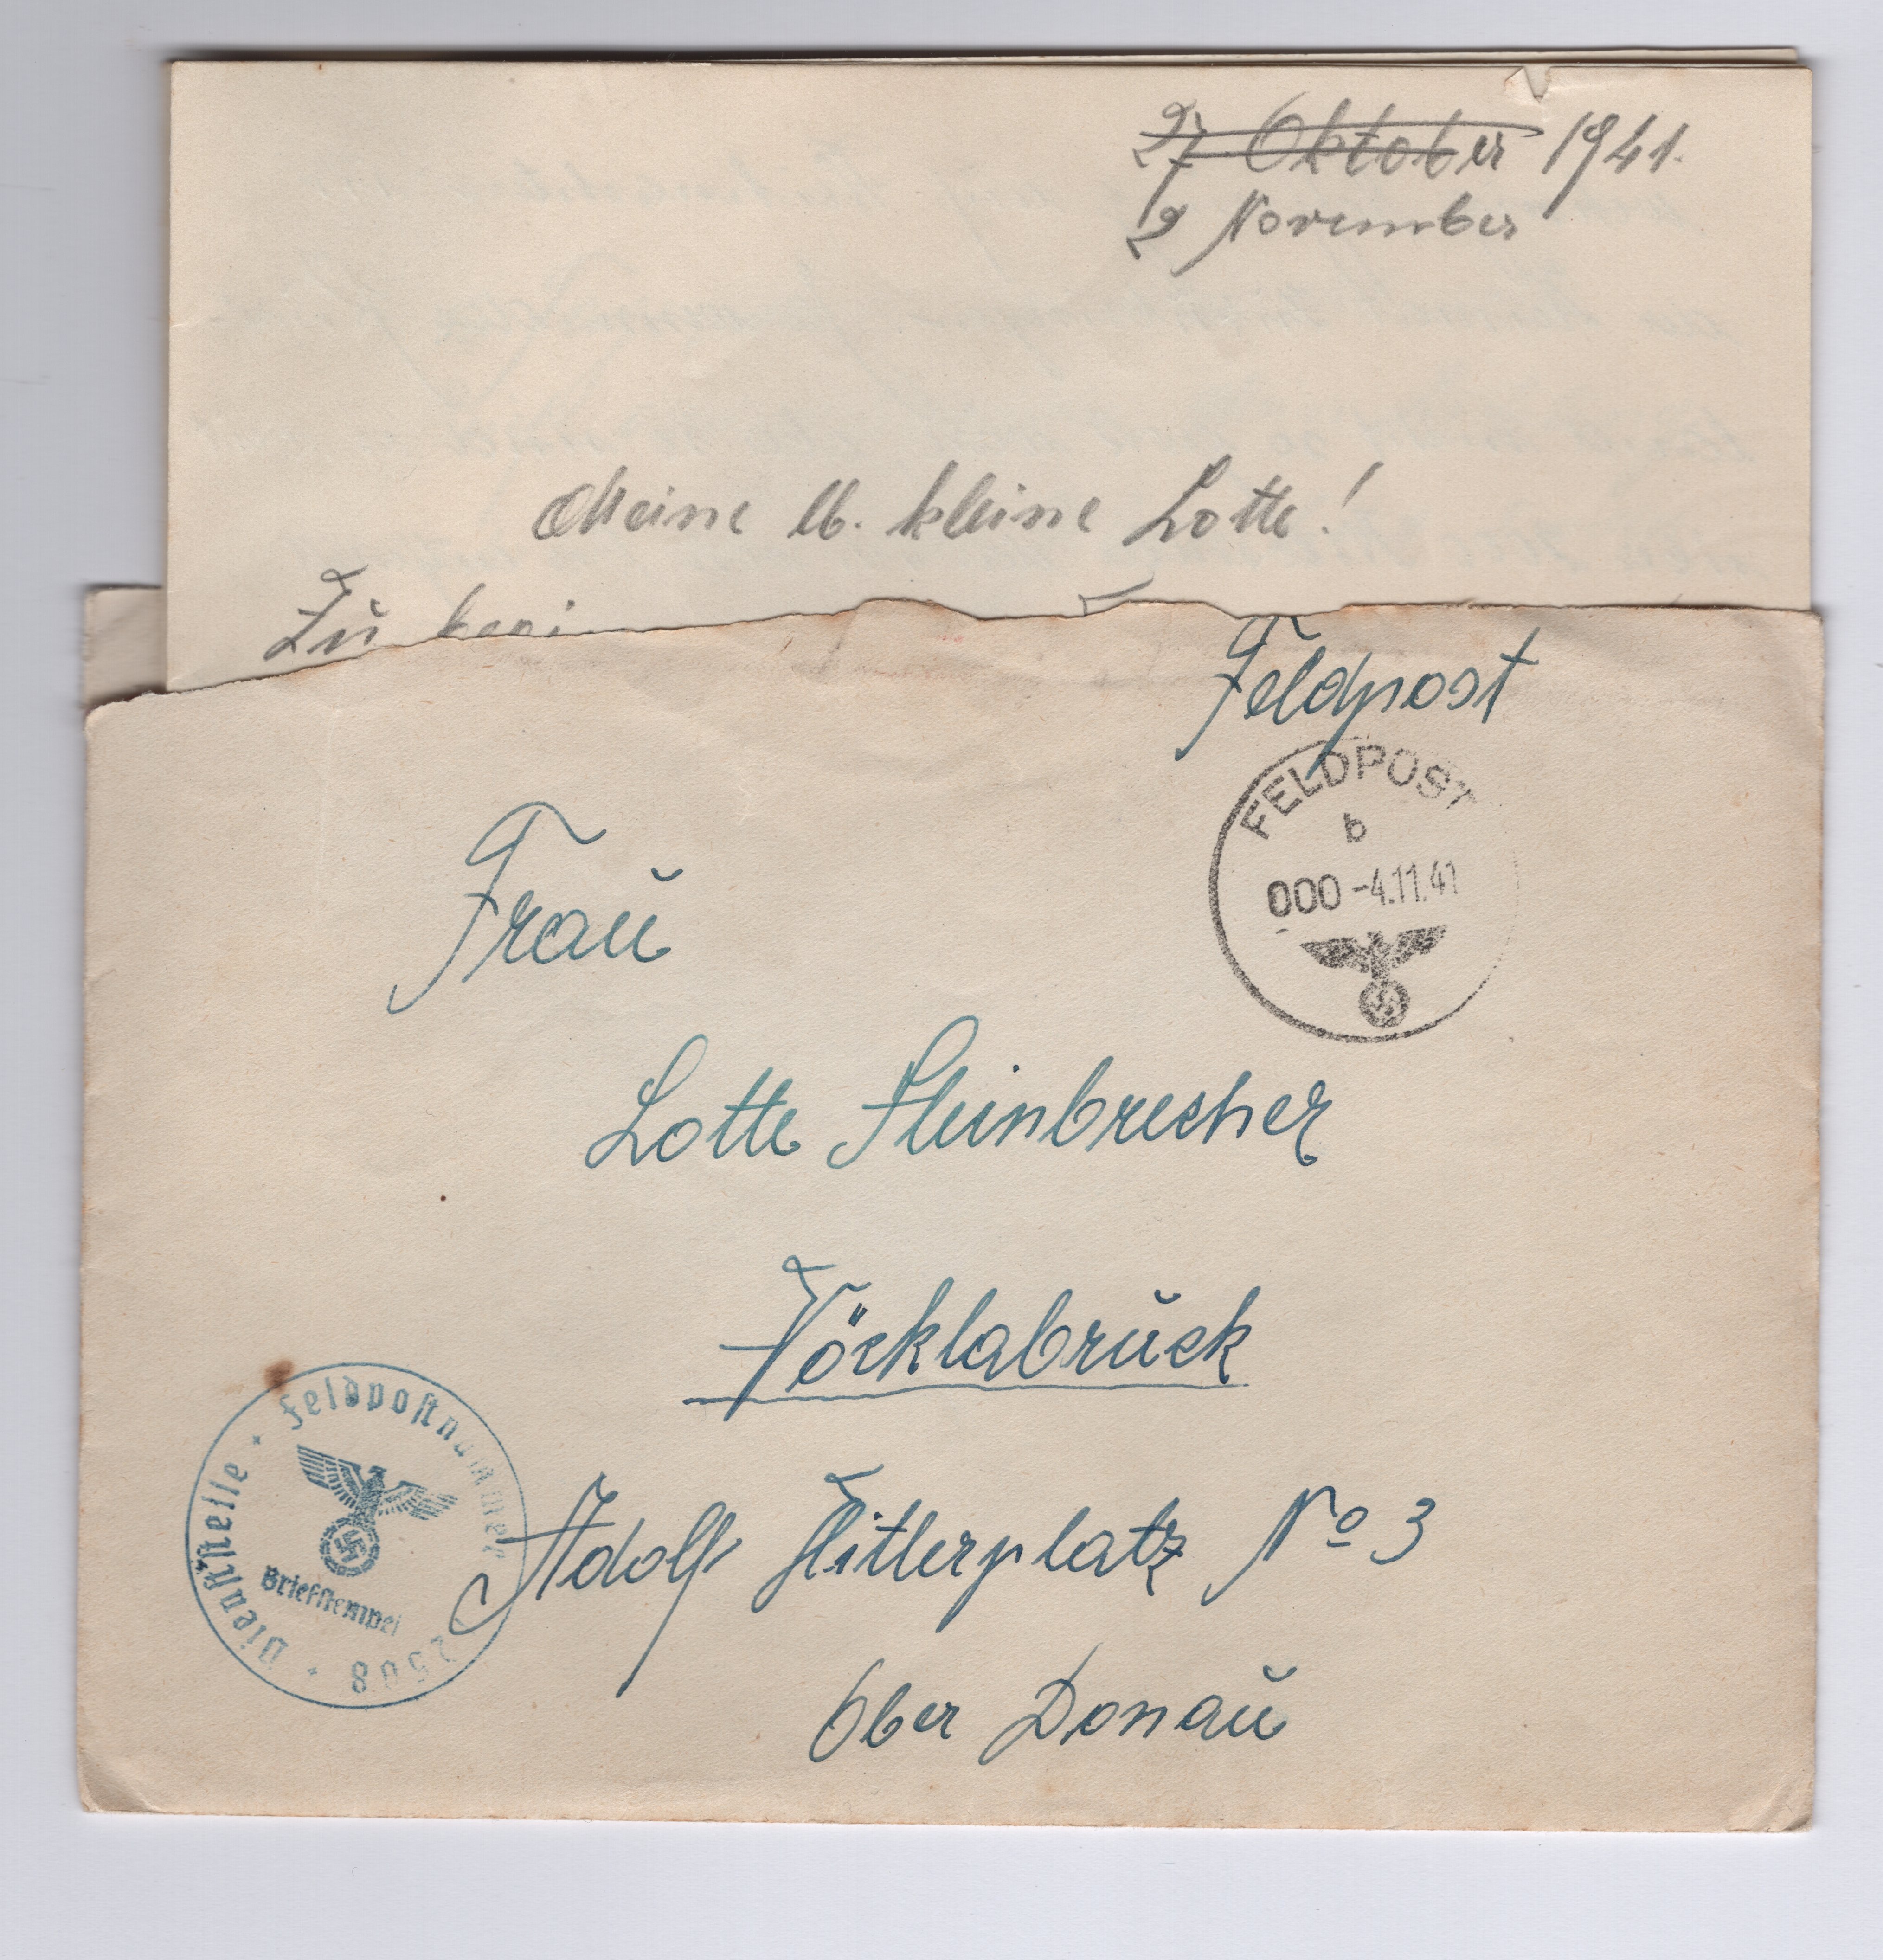 27. Oktober 1941.
2 November
Meine lb. kleine Lotte!
Zu
Feldpost
FELDPOST
b
000 -4.11.41
Frau
Lotte Steinbrecher
Vöcklabruck
Adolf Hitlerplatz No 3
Ober Donau
Dienststelle · Feldpostnummer
Briefstempel